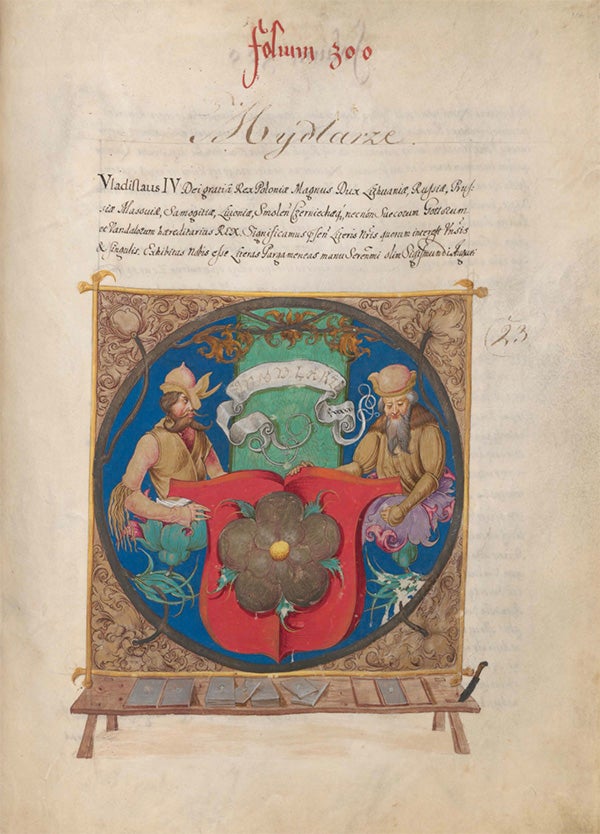 fölium 300
Mydlarze.
Vladislaus IV Dei gratiâ Rex Poloniæ Magnus Dux Lithuaniæ, Russiæ, Prus-
siæ Masoviæ, Samogitiæ, Livoniæ, Smolen: Czerniechoq, necnon Suecorum Gottorum
et Vandalorum hæreditarius REX. Significamus pñtn Literis Nris quorum interest Vnsis
& singulis. Exhibitas Nobis esse Literas Pargameneas manu Serenmi olim Sigismundi Augusti
23